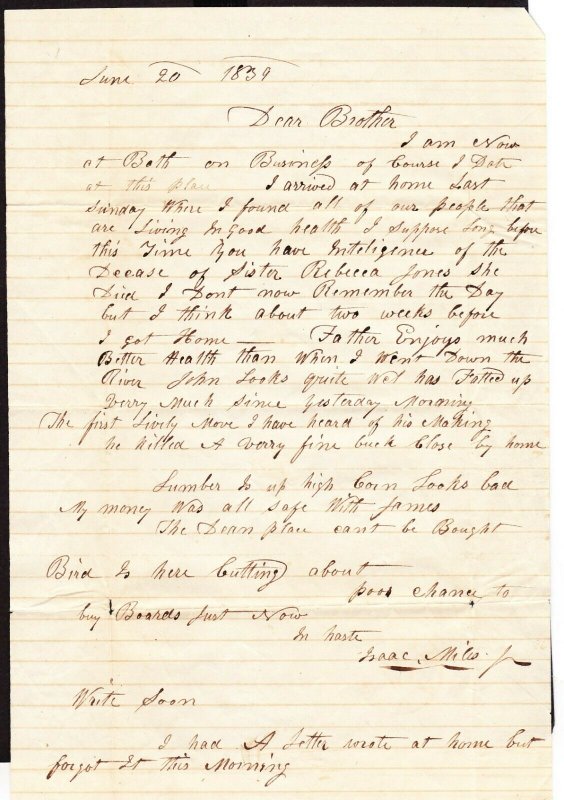 June 20 1839
Dear Brother
I am Now
at Bath on Business of Course I Date
at this place I arrived at home Last
Sunday Where I found all of our people that
are Living In good health I suppose Long before
this Time You have Inteligence of the
Decease of Sister Rebecca Jones she
Died I Dont now Remember the Day
but I think about two weeks before
I got Home — Father Enjoys much
Better Health than When I Went Down the
River John Looks quite Wel has Fatted up
verry Much since Yesterday Morning
The first Lively Move I have heard of his Making
he killed A verry fine buck Close by home
Lumber Is up high Corn Looks bad
My money Was all safe With James
The Dean place cant be Bought
Bird Is here Cutting about
poor chance to
buy Boards Just Now
In haste
Isaac Miles Jr
Write Soon
I had A Letter wrote at home but
forgot It this Morning